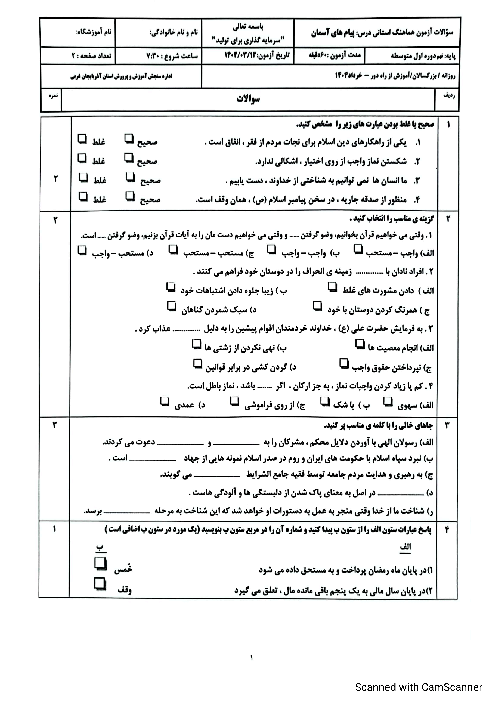 سؤالات آزمون هماهنگ استانی درس: پیام های آسمان
باسمه تعالی
"سرمایه گذاری برای تولید"
نام و نام خانوادگی:
نام آموزشگاه:
پایه: نهم دوره اول متوسطه
مدت آزمون: ۶۰دقیقه
تاریخ آزمون: ۱۴۰۴/۰۳/۱۲
ساعت شروع : ۷:۳۰
تعداد صفحه : ۲
روزانه / بزرگسالان/آموزش از راه دور - خرداد۱۴۰۴
اداره سنجش آموزش و پرورش استان آذربایجان غربی
ردیف
سوالات
نمره
۱ صحیح یا غلط بودن عبارت های زیر را مشخص کنید.
۱. یکی از راهکارهای دین اسلام برای نجات مردم از فقر ، انفاق است . صحیح غلط
۲. شکستن نماز واجب از روی اختیار ، اشکالی ندارد. صحیح غلط
۳. ما انسان ها نمی توانیم به شناختی از خداوند ، دست یابیم . صحیح غلط
۴. منظور از صدقه جاریه ، در سخن پیامبر اسلام (ص) ، همان وقف است. صحیح غلط
۲
۲ گزینه ی مناسب را انتخاب کنید . ۲
۱. وقتی می خواهیم قرآن بخوانیم، وضو گرفتن .... و وقتی می خواهیم دست مان را به آیات قرآن بزنیم، وضو گرفتن .... است.
الف) واجب - مستحب ب) واجب - واجب ج) مستحب - مستحب د) مستحب - واجب
۲. افراد نادان با ............. زمینه ی انحراف را در دوستان خود فراهم می کنند .
الف ) دادن مشورت های غلط ب ) زیبا جلوه دادن اشتباهات خود
ج ) همرنگ کردن دوستان با خود د) سبک شمردن گناهان
۳. به فرمایش حضرت علی (ع) ، خداوند خردمندان اقوام پیشین را به دلیل ............. عذاب کرد .
الف) انجام معصیت ها ب) نهی نکردن از زشتی ها
ج) نپرداختن حقوق واجب د) گردن کشی در برابر قوانین
۴. کم یا زیاد کردن واجبات نماز ، به جز ارکان ، اگر ....... باشد ، نماز باطل است.
الف) سهوی ب ) با شک ج) از روی فراموشی د) عمدی
۳ جاهای خالی را با کلمه ی مناسب پر کنید. ۳
الف) رسولان الهی با آوردن دلایل محکم ، مشرکان را به __________ و __________ دعوت می کردند.
ب) نبرد سپاه اسلام با حکومت های ایران و روم در صدر اسلام نمونه هایی از جهاد __________ است .
ج) به رهبری و هدایت مردم جامعه توسط فقیه جامع الشرایط __________ می گویند.
د) __________ در اصل به معنای پاک شدن از دلبستگی ها و آلودگی هاست .
ر) شناخت ما از خدا وقتی منجر به عمل به دستورات او خواهد شد که این شناخت به مرحله __________ برسد.
۴ پاسخ عبارات ستون الف را از ستون ب پیدا کنید و شماره آن را در مربع ستون ب بنویسید (یک مورد در ستون ب اضافی است ) ۱
الف ب
۱)در پایان ماه رمضان پرداخت و به مستحق داده می شود خُمس
۲)در پایان سال مالی به یک پنجم باقی مانده مال ، تعلق می گیرد وقف
۱
Scanned with CamScanner